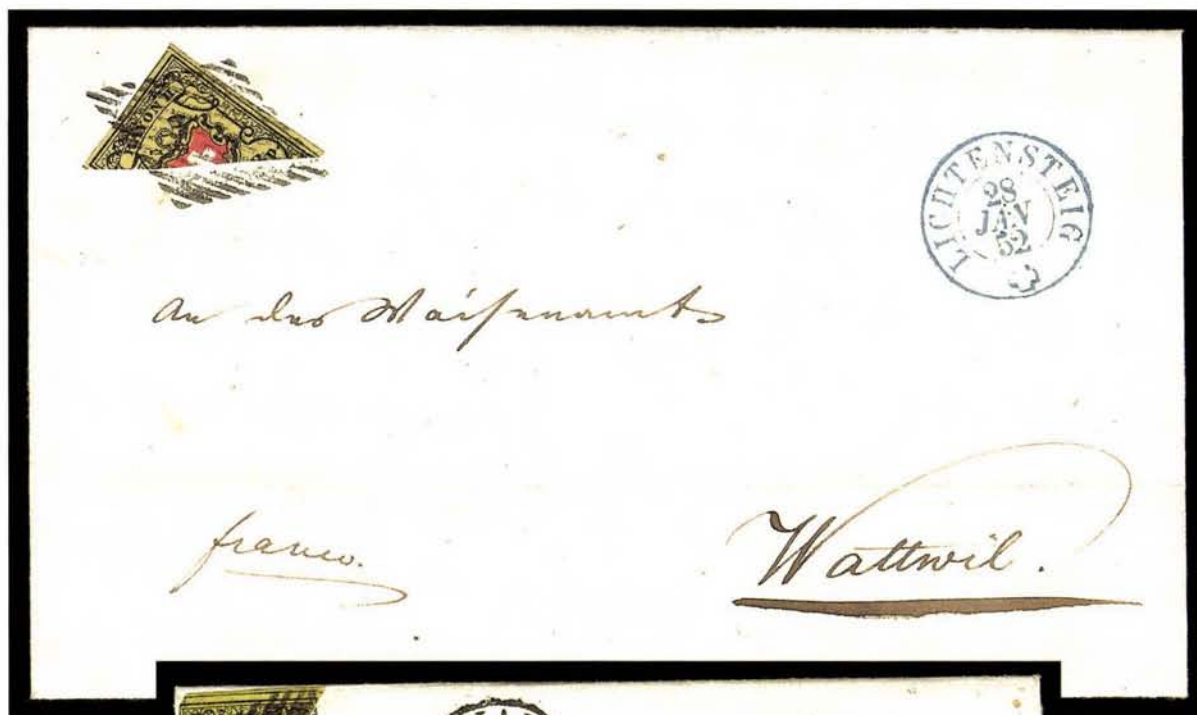 LICHTENSTEIG
28
JAN
52
An das Waisenamt
franco.
Wattwil.